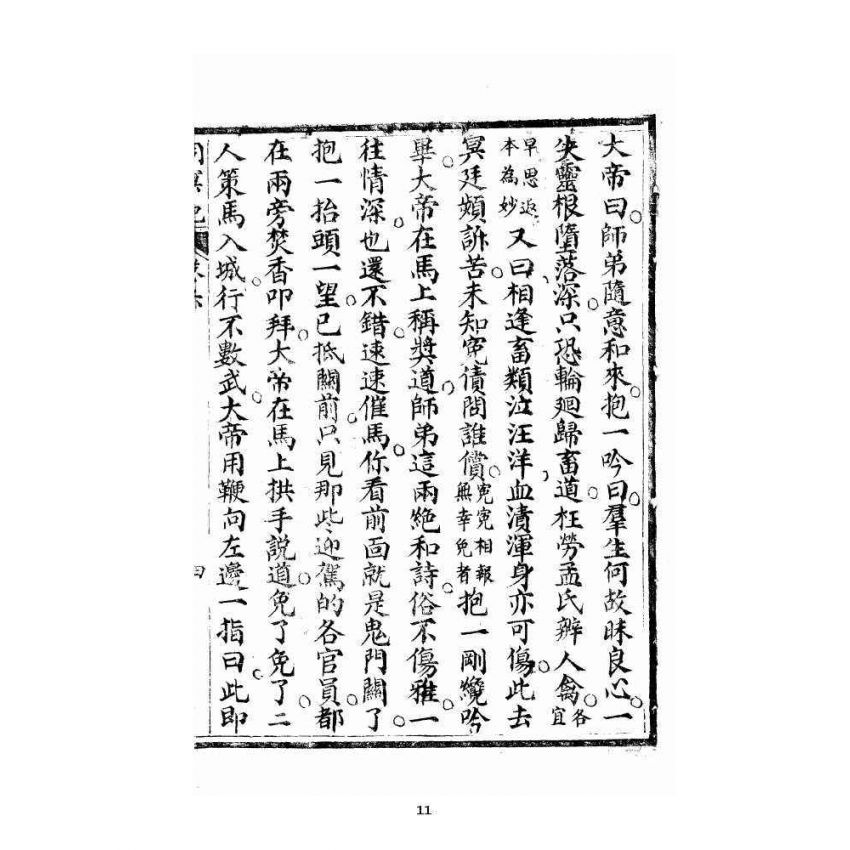 大帝曰。師弟隨意和來。抱一吟曰。羣生何故昧良心。一
失靈根墮落深。只恐輪廻歸畜道。枉勞孟氏辨人禽。各宜
早思返本為妙又曰相逢畜類泣汪洋、血漬渾身亦可傷。此去
冥廷頻訴苦。未知冤債問誰償。冤冤相報無幸免者。抱一剛纔吟
畢。大帝在馬上稱獎道。師弟這兩絶和詩。俗不傷雅。一
往情深也。還不錯。速速催馬。你看前面就是鬼門關了。
抱一抬頭一望。已抵關前。只見那些迎駕的各官員。都
在兩旁焚香叩拜。大帝在馬上拱手説道。免了免了。二
人策馬入城。行不數武。大帝用鞭向左邊一指曰。此即
冥記
11